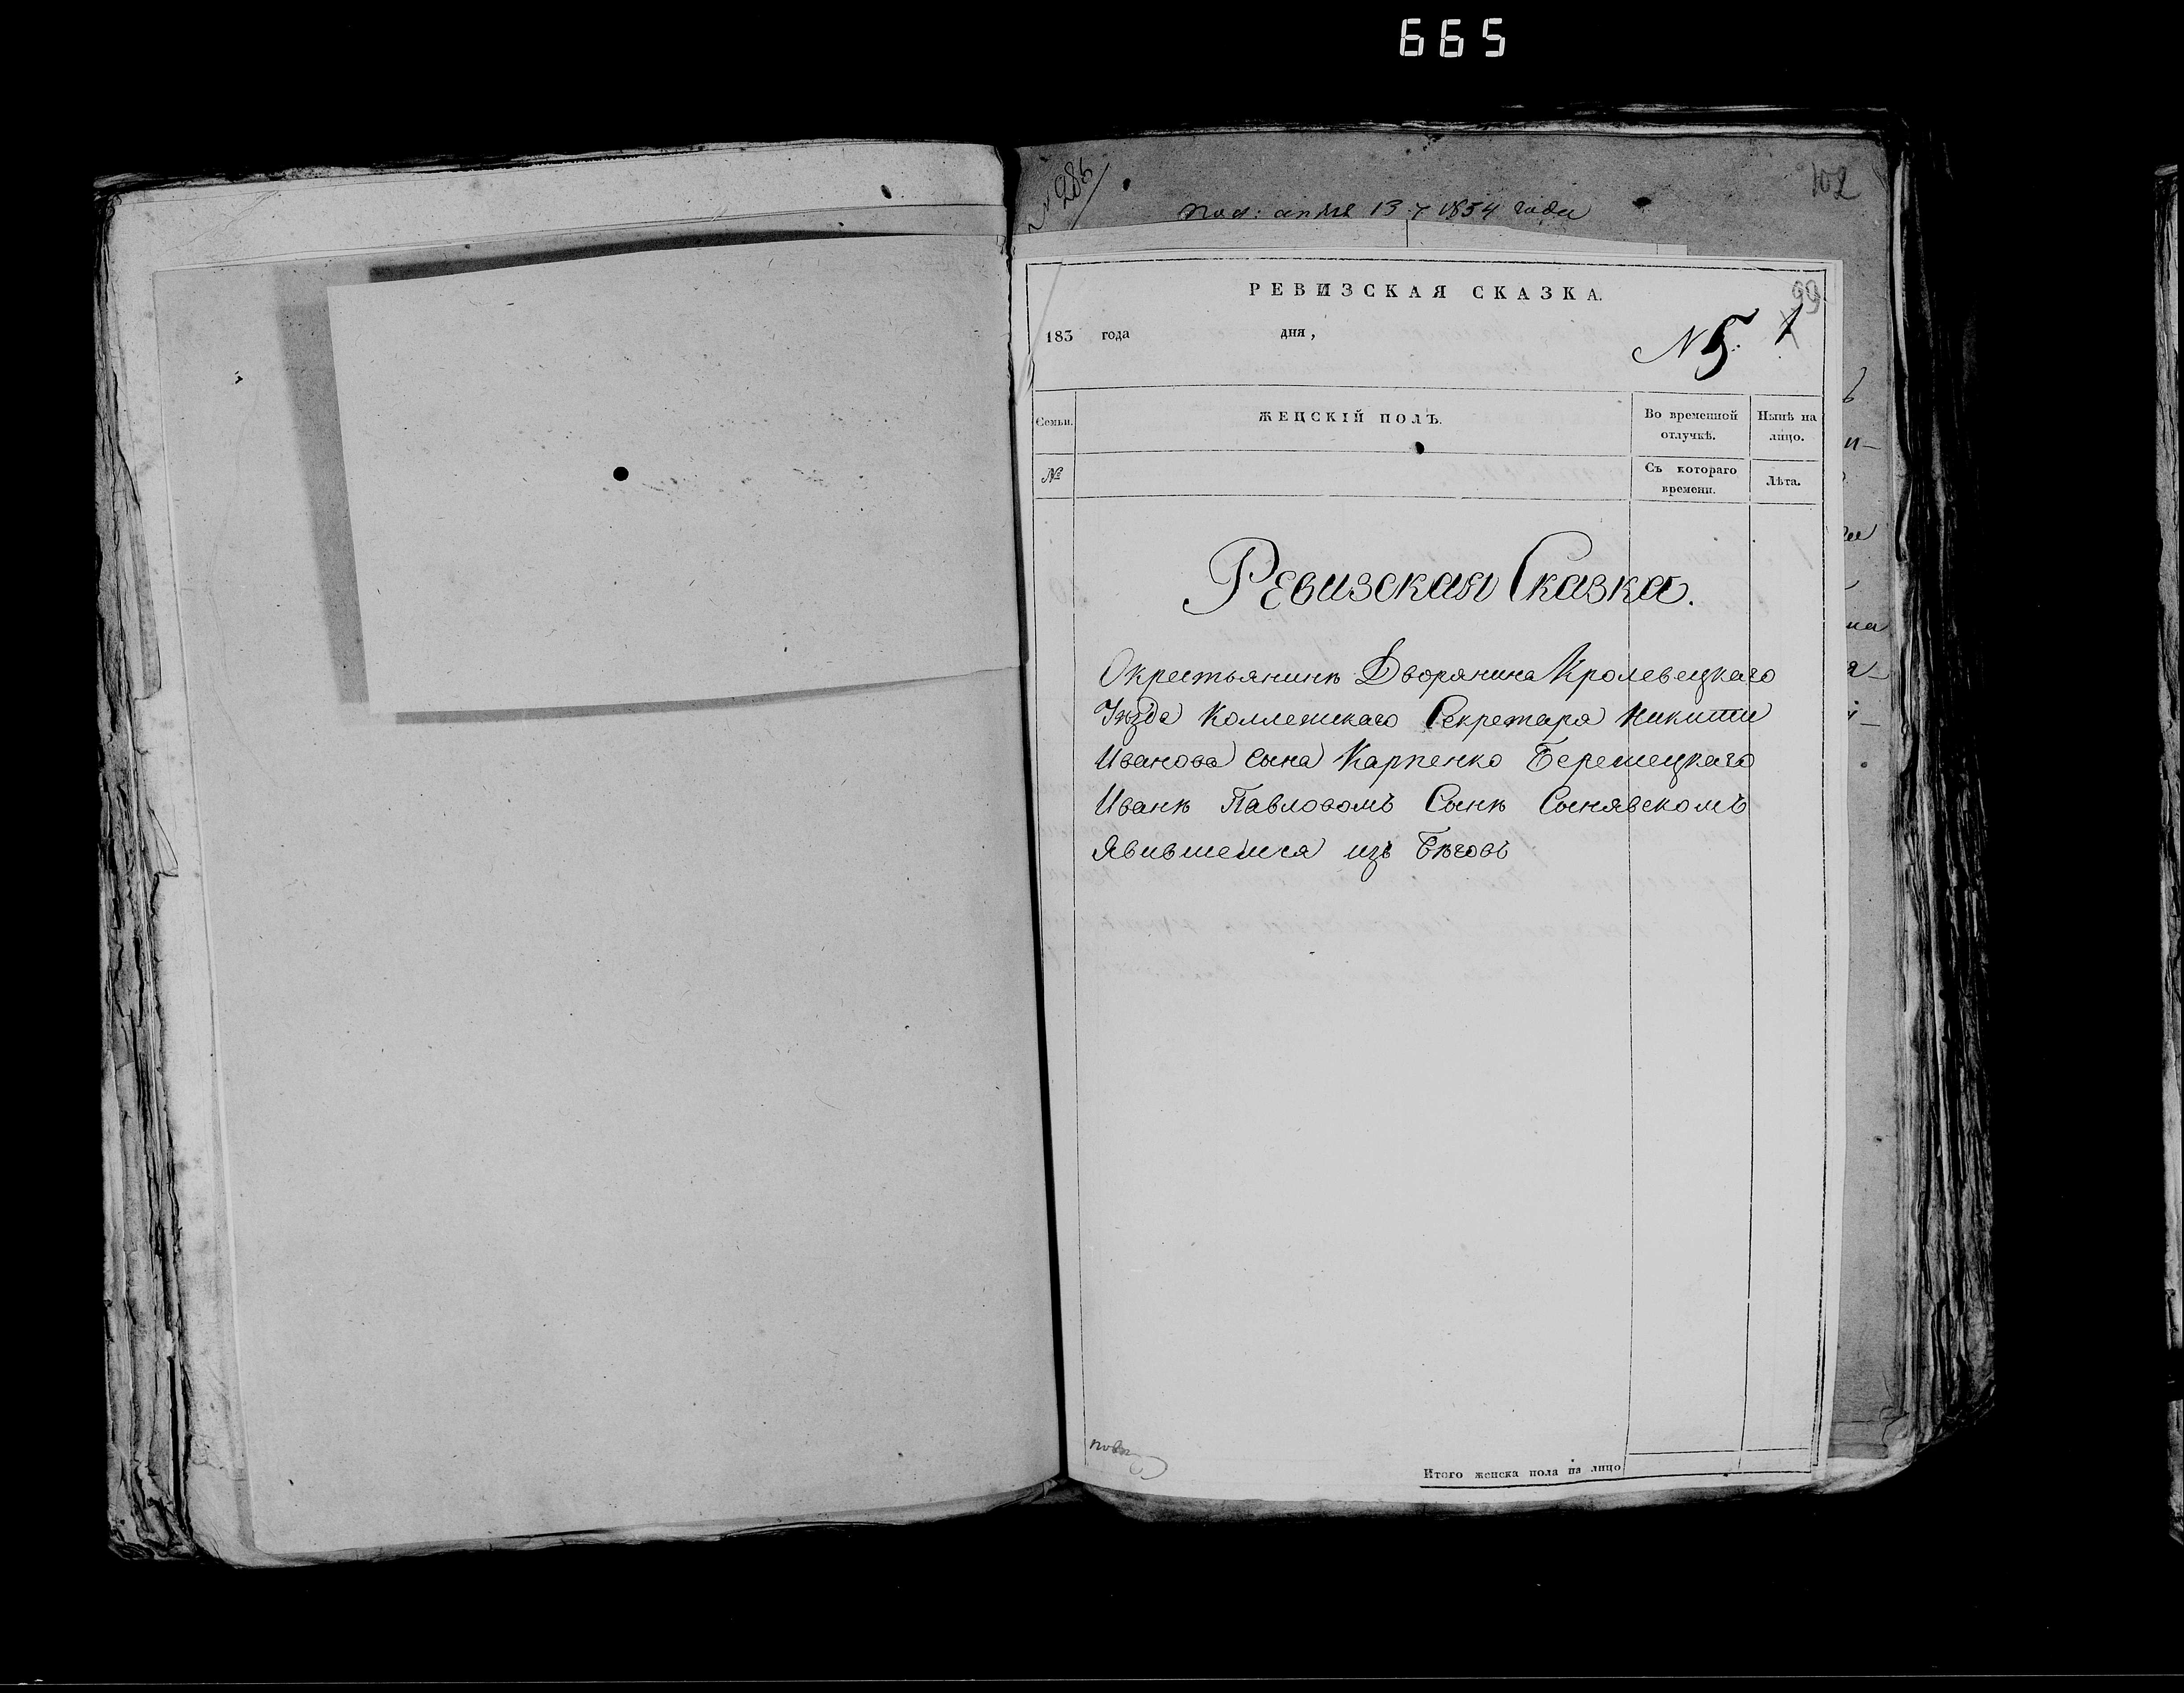 665
№ 286
102
пол: апреля 13 1854 года
РЕВИЗСКАЯ СКАЗКА.
99
183 года дня,
N 5. 1
Семьи. ЖЕНСКІЙ ПОЛЪ. Во временной отлучкѣ. Нынѣ на лицо.
№ Съ котораго времени. Лѣта.
Ревизская Сказка.
Окрестьянинѣ Дворянина Кролевецкаго
Уѣзда Коллежскаго Секретаря Никиты
Иванова Сына Карпенко Беремецкаго
Иванѣ Павловомъ Сынѣ Сынявскомъ
Явившемся изъ Бѣговъ
Итого женска пола на лицо